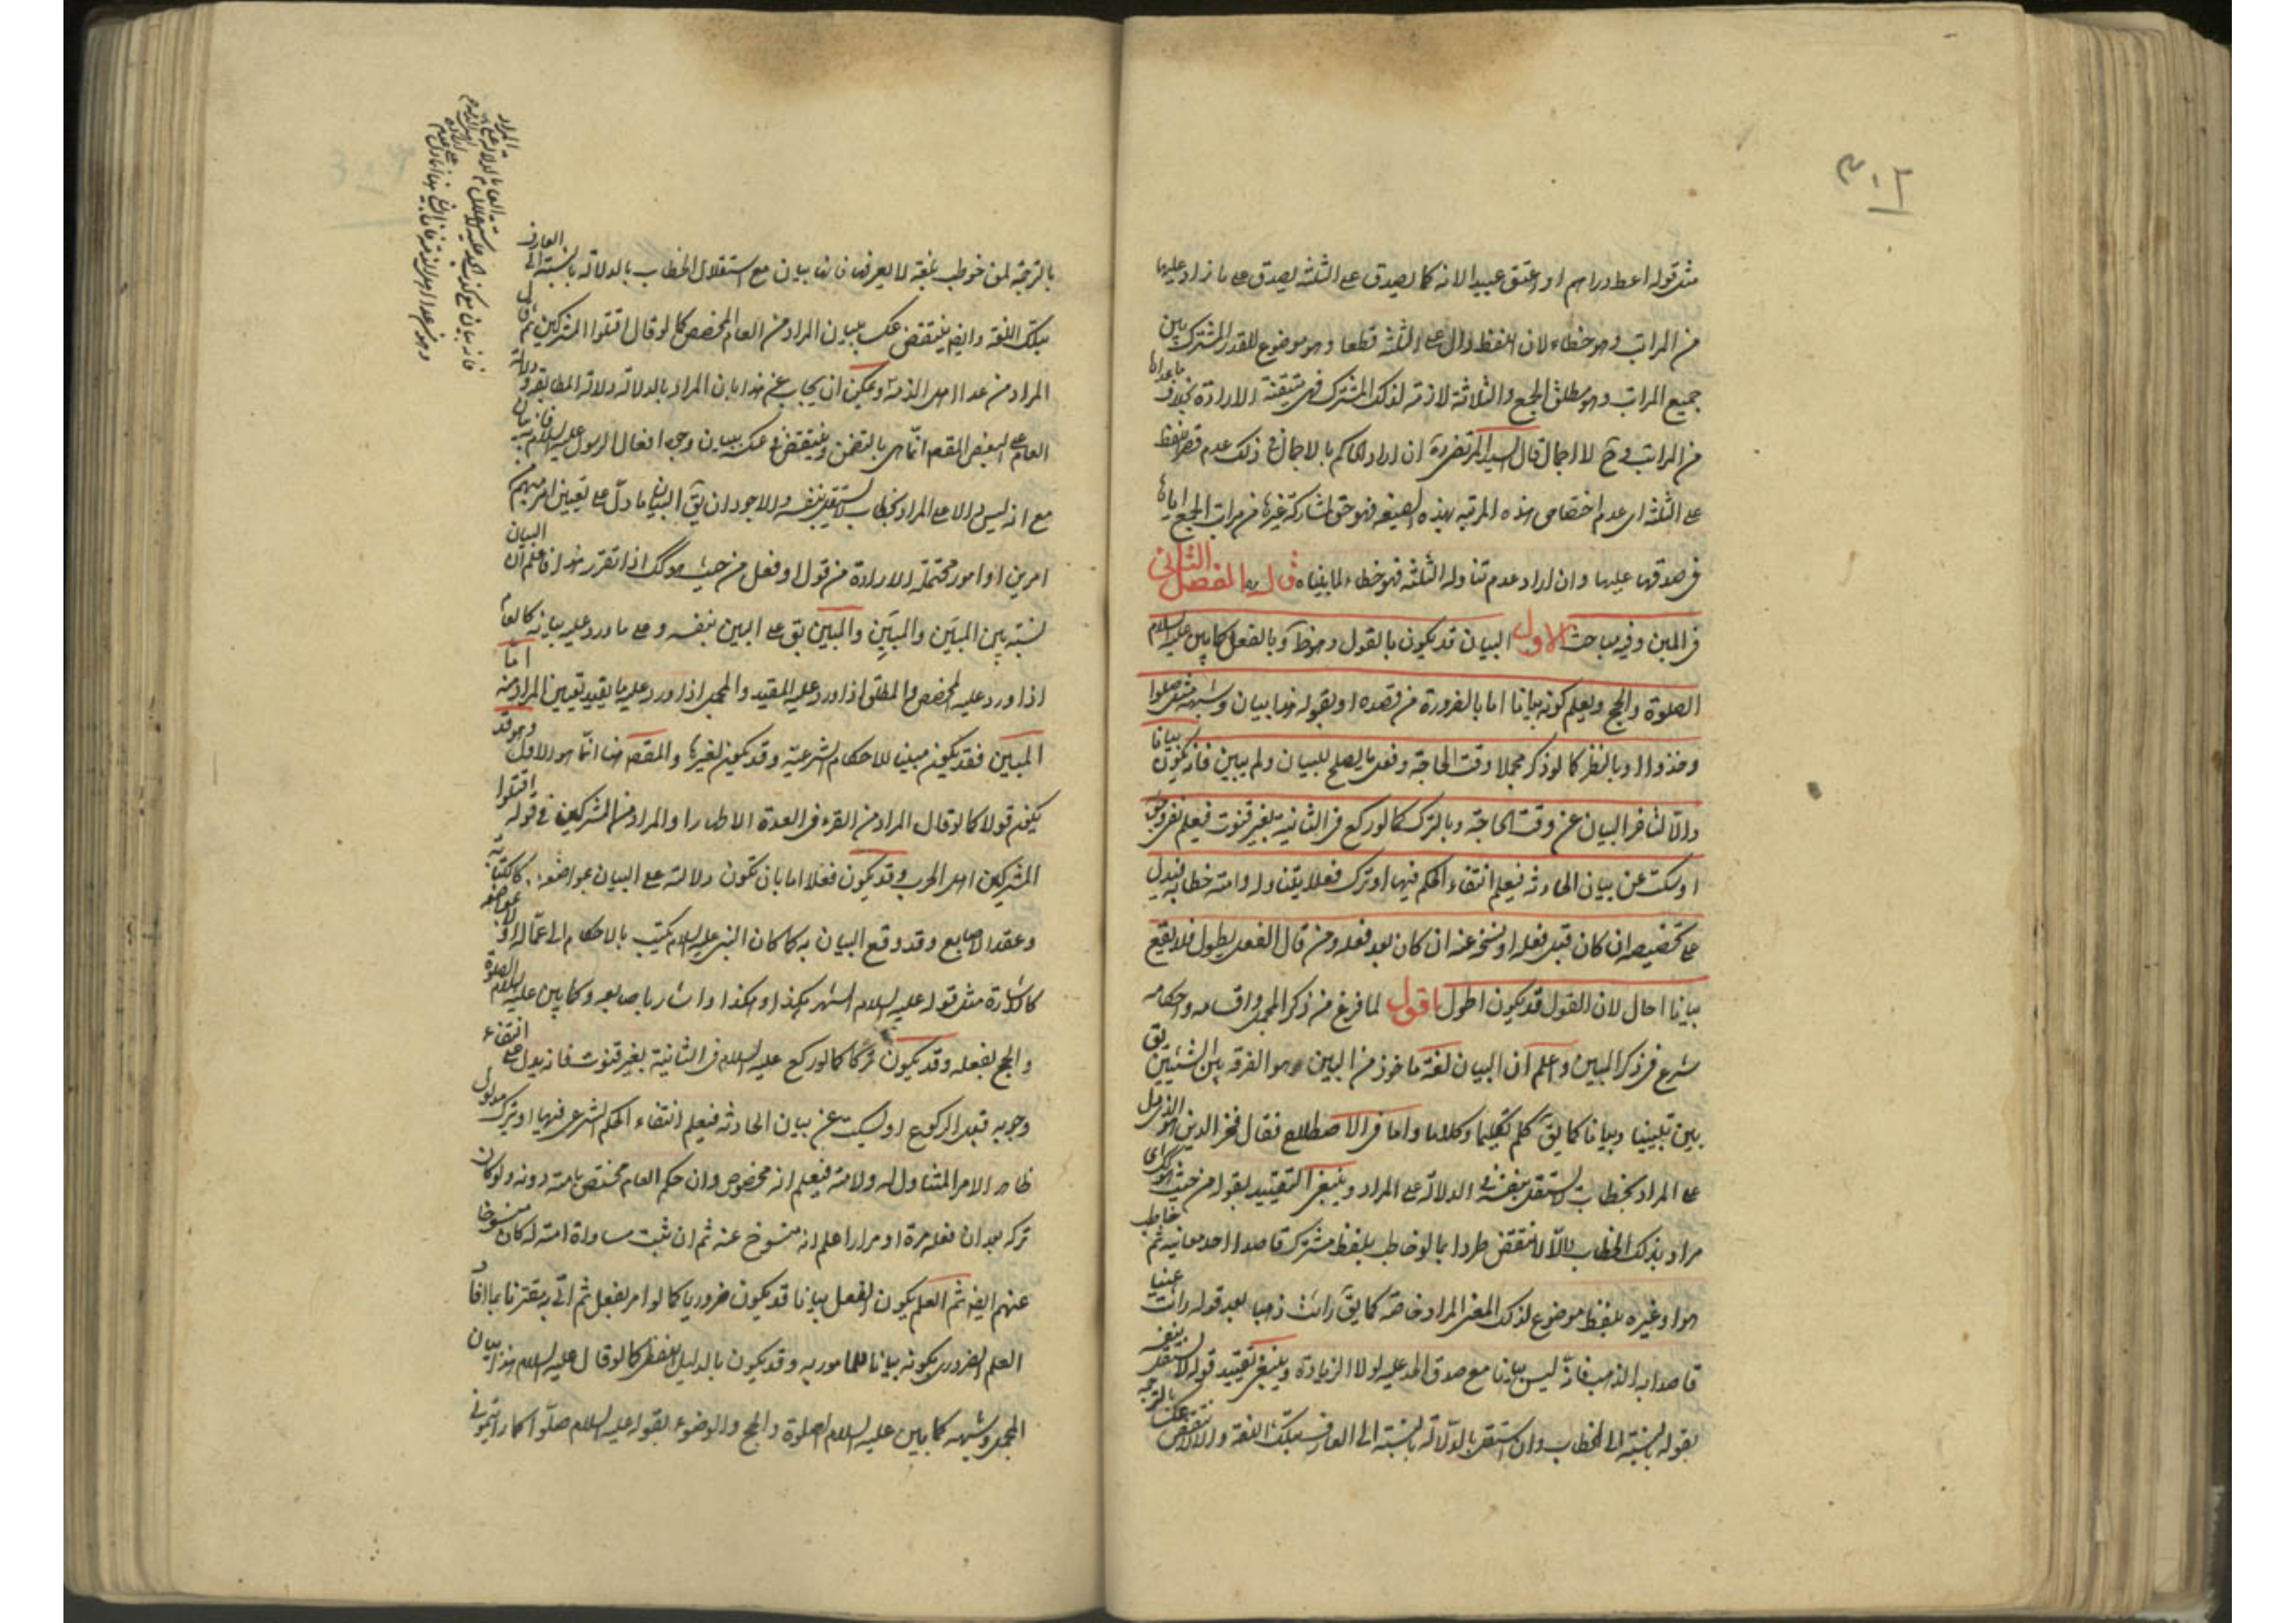 ٣٠٢
مثل قوله اعط دراهم او اعتق عبيدا لانه كما يصدق على الثلثة يصدق على ما زاد عليها
من المراتب وهو خطاء لان اللفظ دال على الثلثة قطعا وهو موضوع للقدر المشترك بين
جميع المراتب وهو مطلق الجمع والثلاثة لازمة لذلك المشترك فهي متيقنة الارادة بخلاف ما عداها
من المراتب وح لا اجمال قال السيد المرتضى ره ان اراد الحاكم بالاجمال في ذلك عدم قصر اللفظ
على الثلثة اى عدم اختصاص هذه المرتبة بهذه الصيغه فهو حق لمشاركة غيرها من مراتب الجمع اياها
فى صدقها عليها وان اراد عدم تناوله الثلثة فهو خطاء لما بيناه قال ره الفصل الثانى
فى المبين وفيه مباحث الاول البيان قد يكون بالقول وهو ظ وبالفعل كما بين عليه السلام
الصلوة والحج ويعلم كونه بيانا اما بالضرورة من قصده او بقوله هذا بيان وشبهه مثل صلوا
وخذوا او بالنظر كما لو ذكر مجملا وقت الحاجة وفعل ما يصلح للبيان ولم يبين فانه يكون بيانا
والا لتاخر البيان عن وقت الحاجة وبالترك كما لو ركع فى الثانية بغير قنوت فيعلم نفى وجوبه
او سكت عن بيان الحادثة فيعلم انتفاء الحكم فيها او ترك فعلا يتناوله وامته خطابه فيدل
على تخصيصه ان كان قبل فعله او نسخه عنه ان كان بعد فعله ومن قال الفعل يطول فلا يقع
بيانا احال لان القول قد يكون اطول اقول لما فرغ من ذكر المجمل واقسامه واحكامه
شرع فى ذكر المبين واعلم ان البيان لغة ماخوذ من البين وهو الفرقة بين الشيئين يق
بين تبيينا وبيانا كما يق كلم تكليما وكلاما واما فى الاصطلاح فقال فخر الدين هو الذى دل
على المراد بخطاب لا يستقل بنفسه فى الدلالة على المراد وينبغى التقييد بقوله من حيث هو كك اى
مراد بذلك الخطاب والا لانتقض طردا بما لو خاطب بلفظ مشترك قاصدا احد معانيه ثم خاطب
هو او غيره بلفظ موضوع لذلك المعنى المراد خاصة كما يق رايت ذهبا بعد قوله رايت عينا
قاصدا به الذهب فانه ليس بيانا مع صدق الحد عليه لولا الزيادة وينبغى تقييد قوله لا يستقل بنفسه
بقوله بالنسبة الى المخاطب وان استقل بالدلالة بالنسبة الى العارف بتلك اللغة والا لانتقض عكسا بالترجمة
بالترجمة لمن خوطب بلغة لا يعرفها فانها بيان مع استقلال الخطاب بالدلالة بالنسبة الى العارف
بتلك اللغة وايضا ينتقض عكسه ببيان المراد من العام المخصص كما لو قال اقتلوا المشركين ثم قال
المراد من عدا اهل الذمة ويمكن ان يجاب عن هذا بان المراد بالدلالة دلالة المطابقة ودلالة
العام على البعض المقصود انما هى بالتضمن وينتقض فى عكسه ببيان وجه افعال الرسول عليه السلام فانه بيان
مع انه ليس دالا على المراد بخطاب لا يستقل بنفسه والاجود ان يق البيان ما دل على تعيين امر مبهم من
امرين او امور محتملة الارادة من قول او فعل من حيث هو كك اذا تقرر هذا فاعلم ان البيان
نسبة بين المبين والمبين والمبين يق على المبين بنفسه وعلى ما ورد عليه بيانه كالعام
اذا ورد عليه المخصص والمطلق اذا ورد عليه المقيد والمجمل اذا ورد عليه ما يفيد تعيين المراد منه اما
المبين فقد يكون مبينا للاحكام الشرعية وقد يكون لغيرها والمقصود هنا انما هو الاول وهو قد
يكون قولا كما لو قال المراد من القرء فى العدة الاطهار او المراد من المشركين فى قوله اقتلوا
المشركين اهل الحرب وقد يكون فعلا اما بان تكون دلالته على البيان بمواضعة كالكتابة
وعقد الاصابع وقد وقع البيان به كما كان النبى عليه السلام يكتب بالاحكام الى عماله او لا بمواضعة
كالاشارة مثل قوله عليه السلام الشهر هكذا وهكذا واشار باصابعه وكما بين عليه السلام الصلوة
والحج بفعله وقد يكون تركا كما لو ركع عليه السلام فى الثانية بغير قنوت فانه يدل على انتفاء
وجوبه قبل الركوع او سكت عن بيان الحادثة فيعلم انتفاء الحكم الشرعى فيها او ترك مدلول
ظاهر الامر المتناول له ولامته فيعلم انه مخصوص وان حكم العام مختص بامته دونه ولو كان
تركه بعد ان فعله مرة او مرارا علم انه منسوخ عنه ثم ان ثبت مساواة امته له كان منسوخا
عنهم ايضا ثم العلم بكون الفعل بيانا قد يكون ضروريا كما لو امر بفعل ثم اتى به مقترنا بما افاد
العلم الضرورى بكونه بيانا للمامور به وقد يكون بالدليل اللفظى كما لو قال عليه السلام هذا بيان
المجمل وشبهه كما بين عليه السلام الصلوة والحج والوضوء بقوله عليه السلام صلوا كما رايتمونى